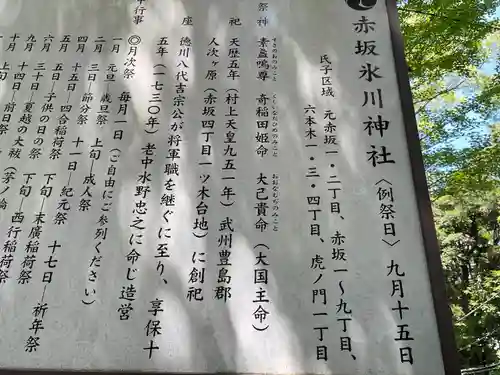 赤坂氷川神社〈例祭日〉九月十五日
氏子区域 元赤坂一・二丁目、赤坂一〜九丁目、
六本木一・三・四丁目、虎ノ門一丁目
祭神 素盞嗚尊 奇稲田姫命 大己貴命(大国主命)
すさのおのみこと くしいなだひめのみこと おおなむぢのみこと
祀 天暦五年(村上天皇九五一年)武州豊島郡
人次ヶ原(赤坂四丁目一ツ木台地)に創祀
座 徳川八代吉宗公が将軍職を継ぐに至り、享保十
五年(一七三〇年)老中水野忠之に命じ造営
年行事
◎月次祭 毎月一日(ご自由にご参列ください)
一月 元旦―歳旦祭 上旬―成人祭
二月 三日―節分祭 十一日―紀元祭
四月 十五日―四合稲荷祭 十七日―祈年祭
五月 五日―子供の日の祭 下旬―末廣稲荷祭
六月 三十日―夏越の大祓 下旬―西行稲荷祭